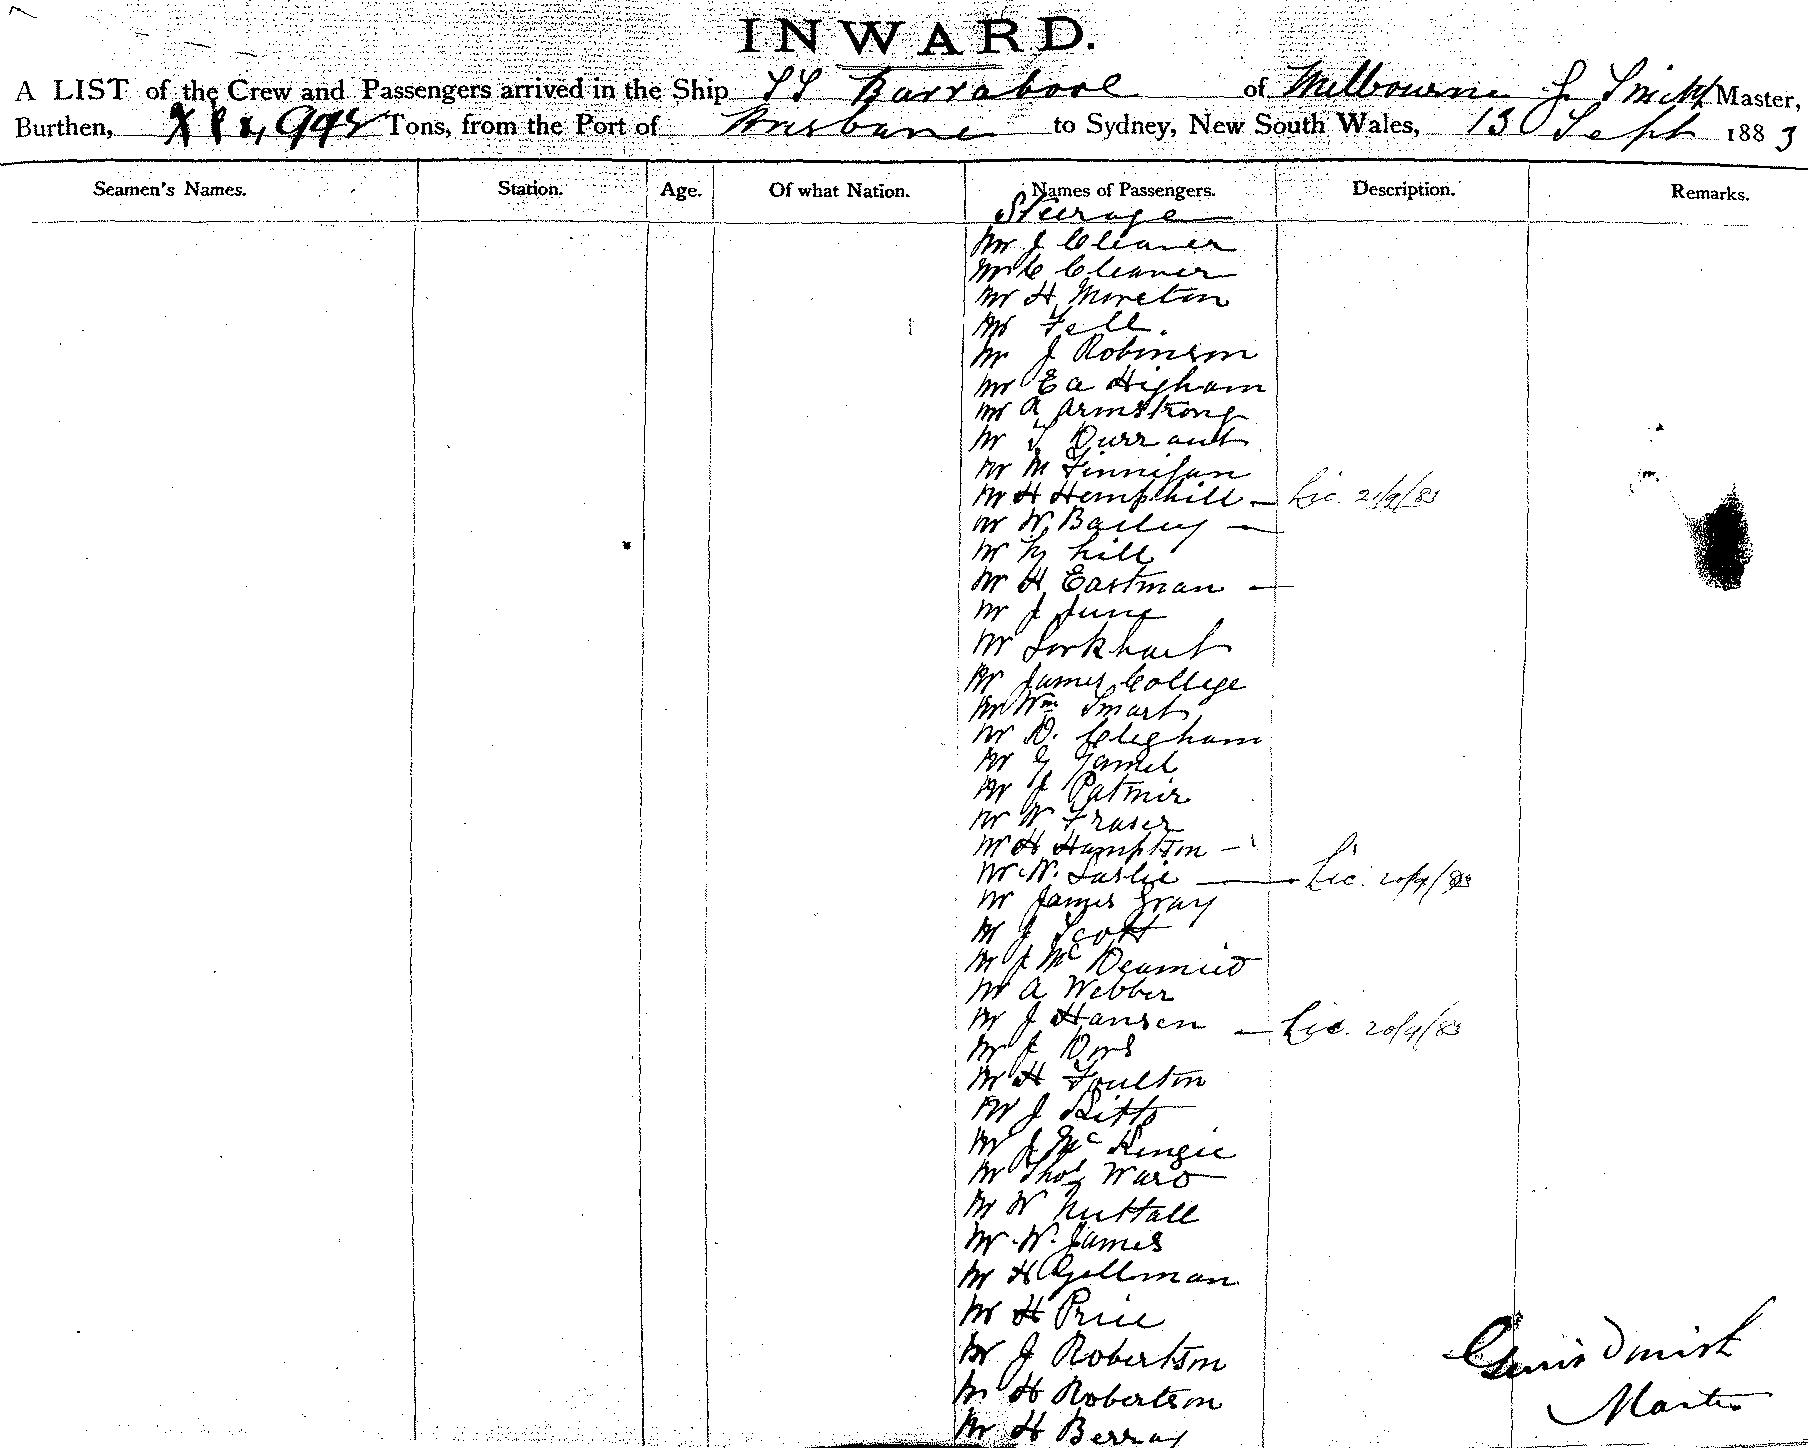 INWARD.
A LIST of the Crew and Passengers arrived in the Ship SS Barrabool of Melbourne J Smith Master,
Burthen, Tons, from the Port of Brisbane to Sydney, New South Wales, 13 Sept 1883
Seamen's Names. Station. Age. Of what Nation. Names of Passengers. Description. Remarks.
Steerage
Mr J Cleaver
Mr C Cleaver
Mr H Moreton
Mr Fell.
Mr J Robinson
Mr Ea Higham
Mr A Armstrong
Mr T Durrant
Mr M Finnigan
Mr H Hemphill — Lic. 21/9/83
Mr W Bailey —
Mr hill
Mr H Eastman —
Mr J June
Mr Lorkhart
Mr James College
Mr Wm Smart
Mr D. Clegham
Mr G
Mr J Patmir
Mr W Fraser
Mr H Hampton —
Mr W. Laslie — Lic. 20/9/83
Mr James Gray
Mr J Scott
Mr J Mc
Mr A Webber
Mr J Hansen — Lic. 20/9/83
Mr J
Mr H Foulton
Mr J Kitto
Mr J McKenzie
Mr Thos Ward
Mr W Nuttall
Mr W. James
Mr H Gellman
Mr H Price
Mr J Robertson
Mr H Robertson
Mr H Berray
Master